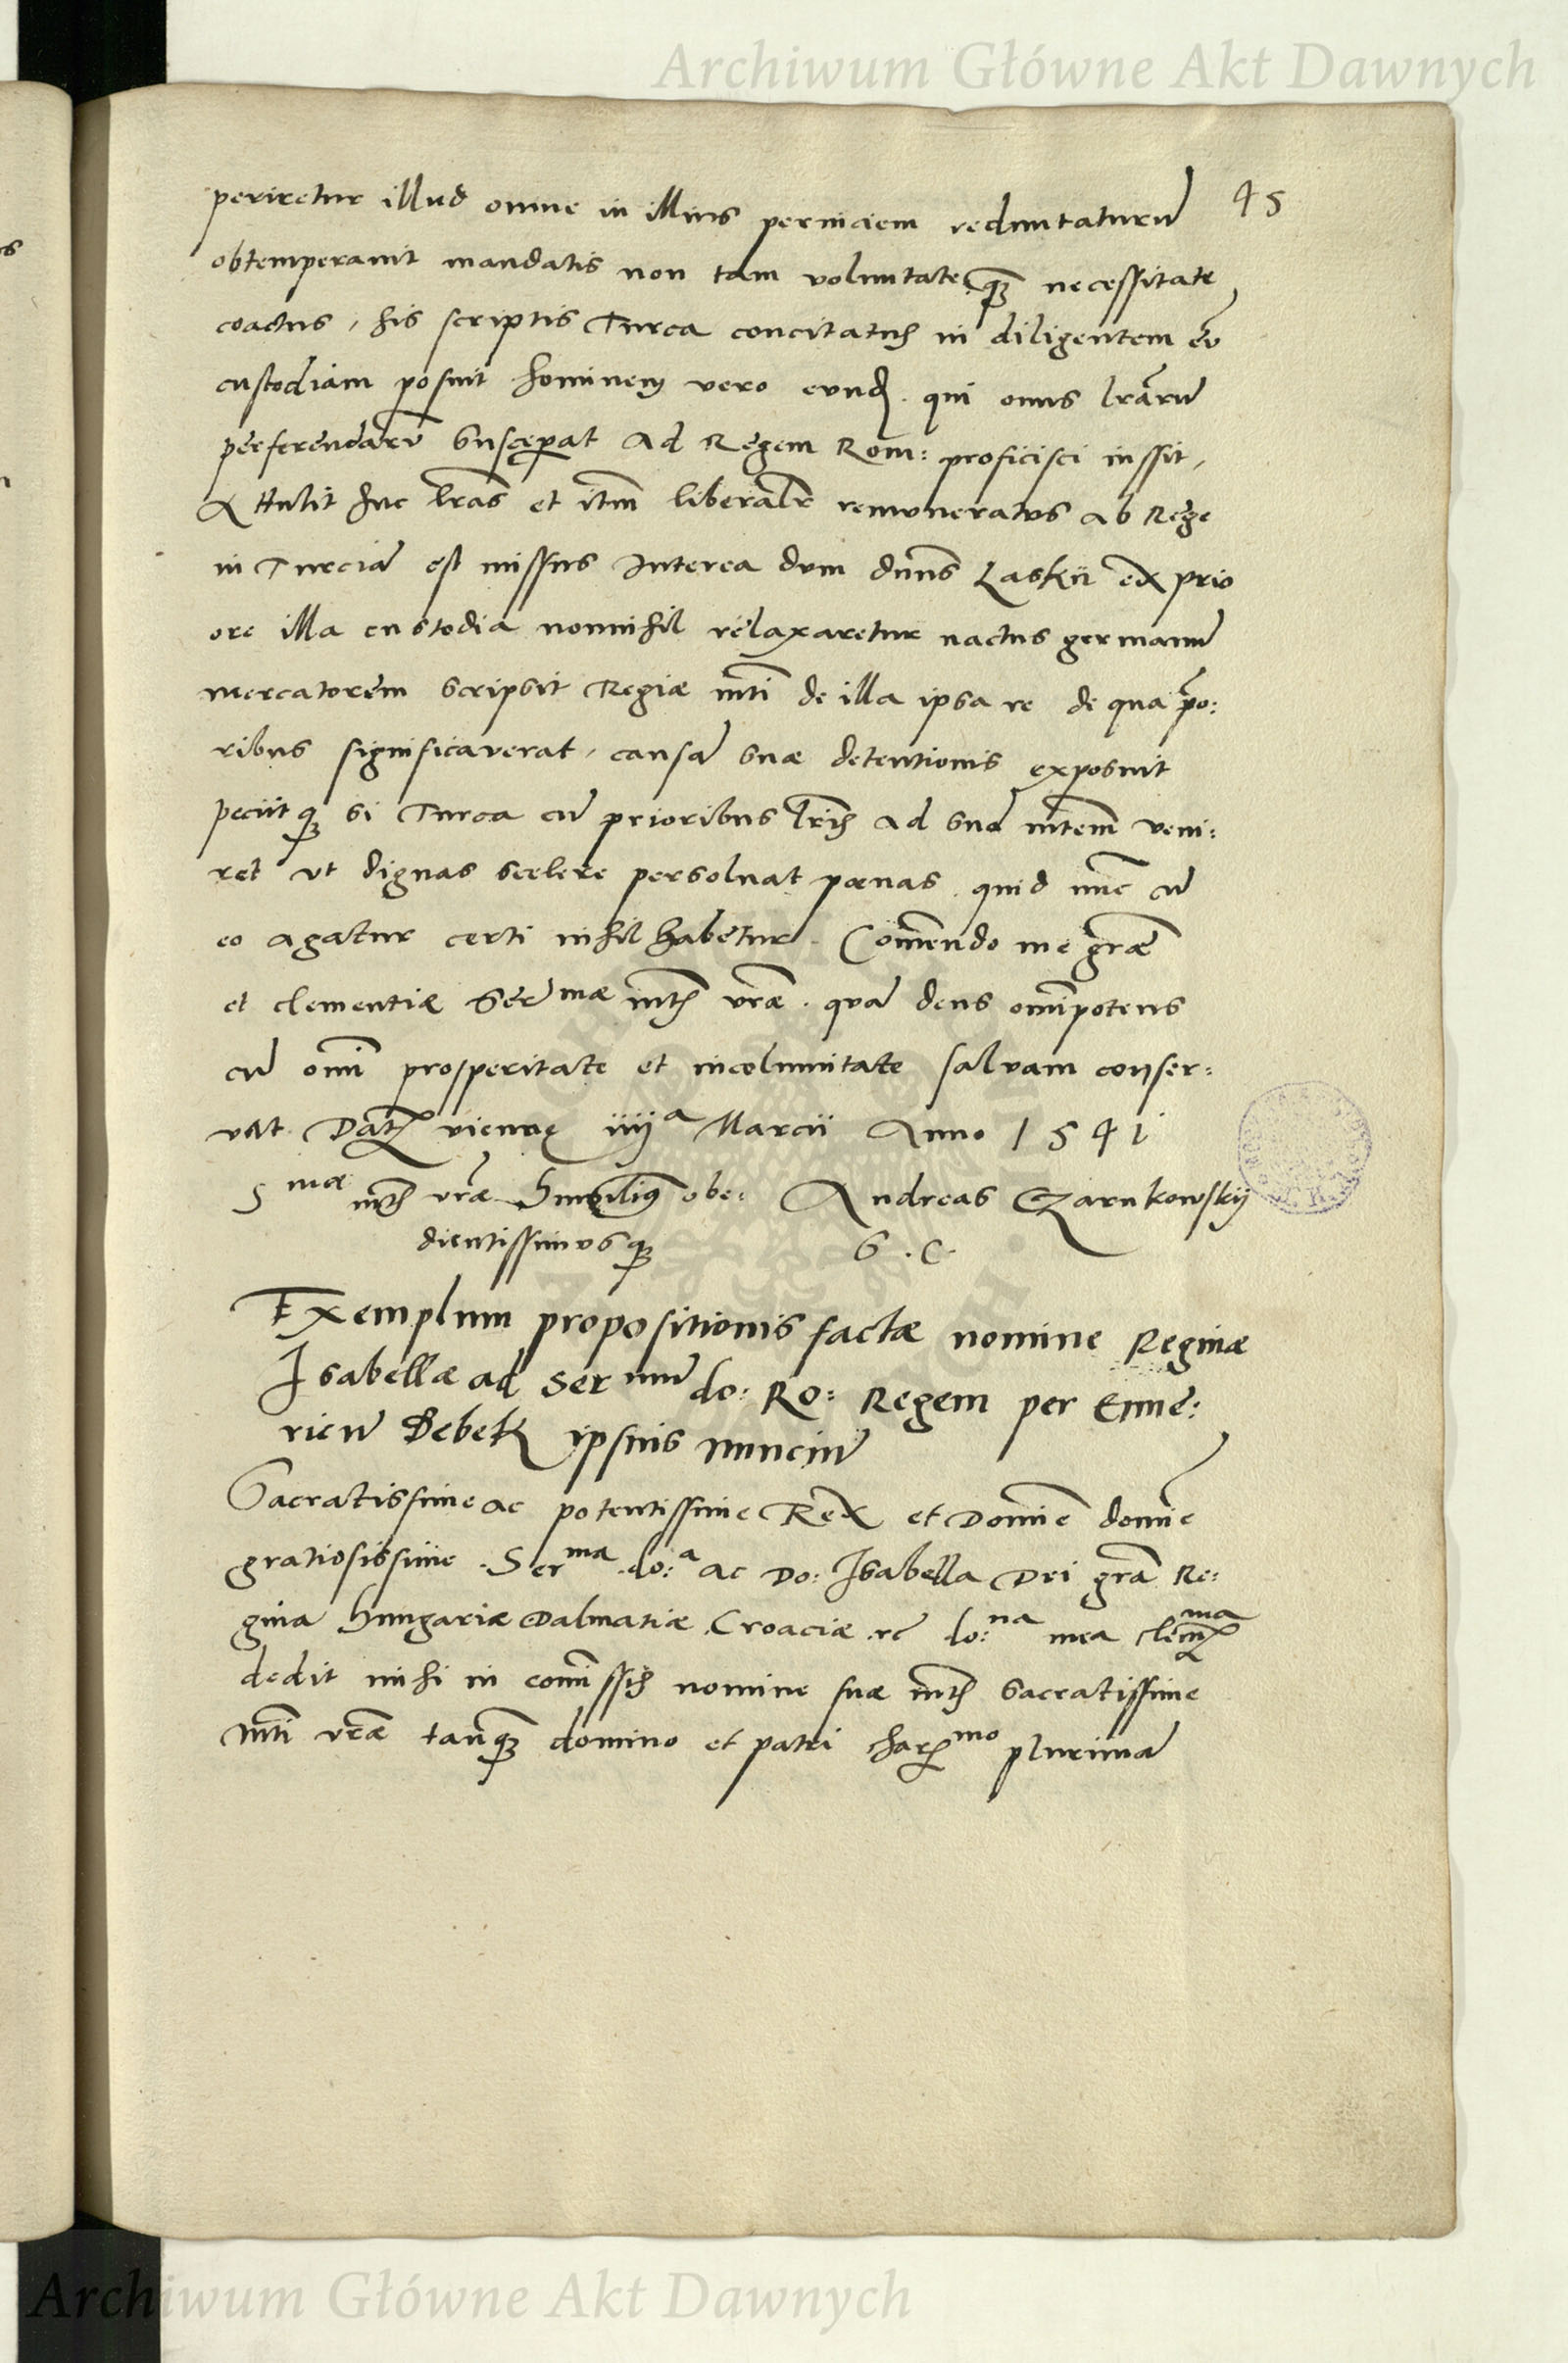 Archiwum Główne Akt Dawnych
45
periretur illud omne in illius perniciem redundaturū
obtemperauit mandatis non tam voluntate quā necessitate
coactus, his scriptis Turca concitatus in diligentem eū
custodiam posuit hominem vero eund. qui onus lrārū
perferendarū susceperat ad Regem Rom: proficisci iussit,
Attulit huc lrās et itm̄ liberalr̄ remuneratus ab Rege
in Turciā est missus Interea dum dnūs Laskii ex prio
ore illa custodia nonnihil relaxaretur nactus germanū
mercatorem scripsit Regiæ mti de illa ipsa re de qua prio:
ribus significauerat, causā suæ detentionis exposuit
peciitq; si Turca cū prioribus lrīs ad suā mtem veni:
ret vt dignas scelere persoluat pœnas. quid nunc cū
eo agatur certi nihil habetur. Comēndo me grāe
et clementiæ Sermæ mtis vrāe. quā deus omīpotens
cū omī prosperitate et incolumitate saluam conser:
vat Dat viennę iiijᵃ Marcii Anno 1541
Smæ mtis vrāe humilius obe: Andreas Czarnkowskij
dientissimusq; S. C.
Exemplum propositionis factæ nomine Reginæ
Isabellæ ad Sermū do: Ro: Regem per Eme:
ricū Bebek ipsius nunciū
Sacratissime ac potentissime Rex et Domīe domīe
gratiosissime. Serma do:ᵃ ac Do: Isabella Dei grā Re:
gina Hungariæ Dalmatiæ Croaciæ rc̄ do:na mea clemᵐᵃ
dedit mihi in comīssis nomine suæ mtis Sacratissime
Mti vrāe tanq; domino et patri charmo plurimā
Archiwum Główne Akt Dawnych